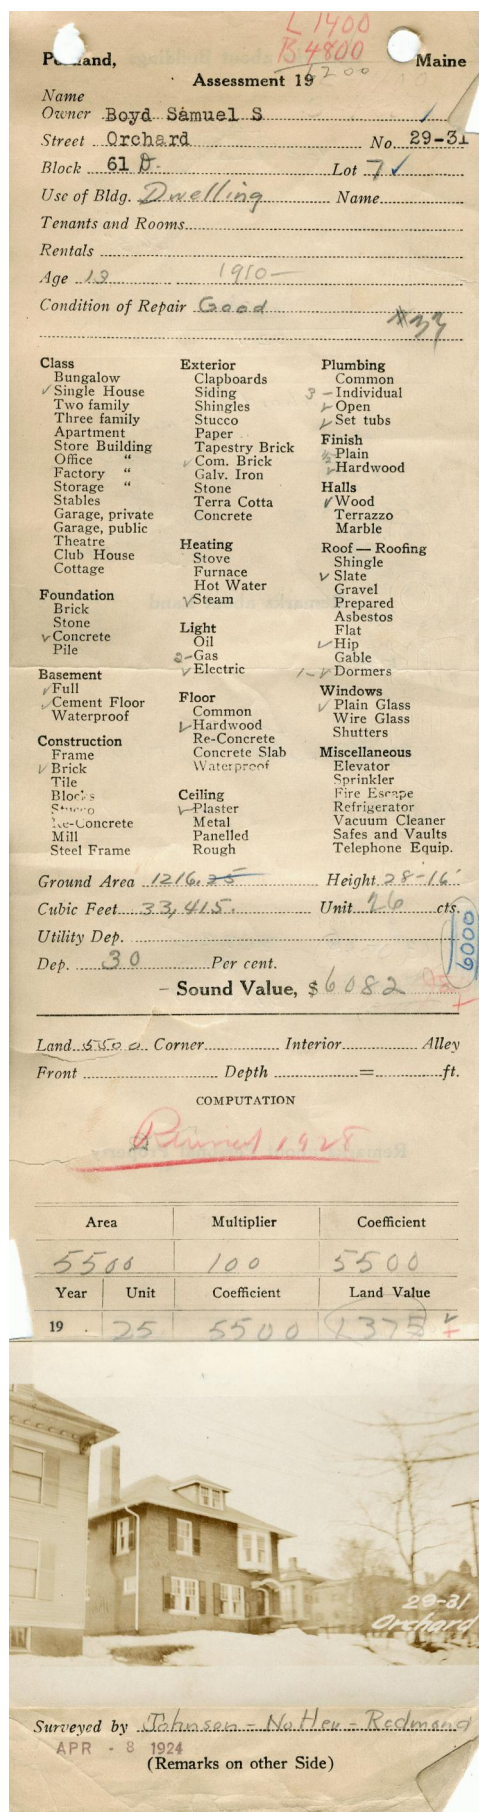 L 1400
B 4800
6200
Portland, Maine
Assessment 19
Name
Owner Boyd Samuel S
Street Orchard No. 29-31
Block 61 D. Lot 7 ✓
Use of Bldg. Dwelling Name
Tenants and Rooms
Rentals
Age 13 1910—
Condition of Repair Good
#33
Class
✓ Bungalow
✓ Single House
Two family
Three family
Apartment
Store Building
Office "
Factory "
Storage "
Stables
Garage, private
Garage, public
Theatre
Club House
Cottage
Foundation
Brick
Stone
✓ Concrete
Pile
Basement
✓ Full
✓ Cement Floor
Waterproof
Construction
Frame
✓ Brick
Tile
Blocks
Stucco
Re-Concrete
Mill
Steel Frame
Exterior
Clapboards
Siding
Shingles
Stucco
Paper
Tapestry Brick
✓ Com. Brick
Galv. Iron
Stone
Terra Cotta
Concrete
Heating
Stove
Furnace
Hot Water
✓ Steam
Light
Oil
2- Gas
✓ Electric
Floor
Common
✓ Hardwood
Re-Concrete
Concrete Slab
Waterproof
Ceiling
✓ Plaster
Metal
Panelled
Rough
Plumbing
Common
3 - Individual
✓ Open
✓ Set tubs
Finish
½ Plain
½ Hardwood
Halls
✓ Wood
Terrazzo
Marble
Roof — Roofing
Shingle
✓ Slate
Gravel
Prepared
Asbestos
Flat
✓ Hip
Gable
1- ✓ Dormers
Windows
✓ Plain Glass
Wire Glass
Shutters
Miscellaneous
Elevator
Sprinkler
Fire Escape
Refrigerator
Vacuum Cleaner
Safes and Vaults
Telephone Equip.
Ground Area 1216.25 Height 28-16'
Cubic Feet 33,415. Unit 26 cts.
Utility Dep.
6000
Dep. 30 Per cent.
- Sound Value, $6082
Land 5500 Corner Interior Alley
Front Depth = ft.
COMPUTATION
1928
Area Multiplier Coefficient
5500 100 5500
Year Unit Coefficient Land Value
19 25 5500 1375
29-31
Orchard
Surveyed by Johnson - Notley - Redmond
APR - 8 1924
(Remarks on other Side)